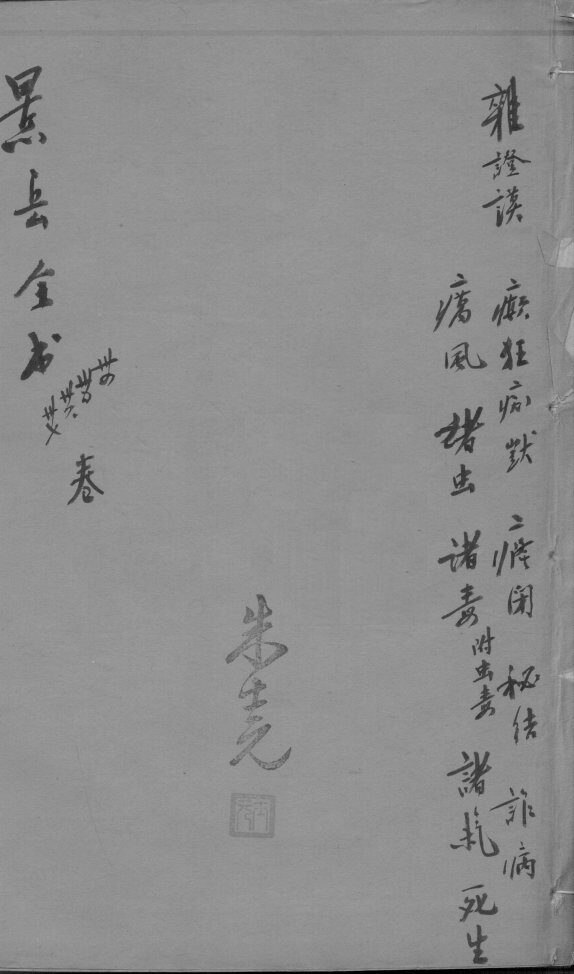 雜證謨 癲狂痴獃 癃閉 秘結 詐病
癘風 諸虫 諸毒 附虫毒 諸氣 死生
朱堯
景岳全书 卅四 卅五 卅六 卅七 卷